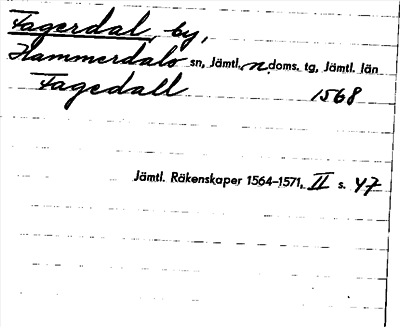 Fagerdal, by,
Hammerdals sn, Jämtl. n. doms. tg, Jämtl. län
Fagedall 1568
Jämtl. Räkenskaper 1564–1571, II s. 47